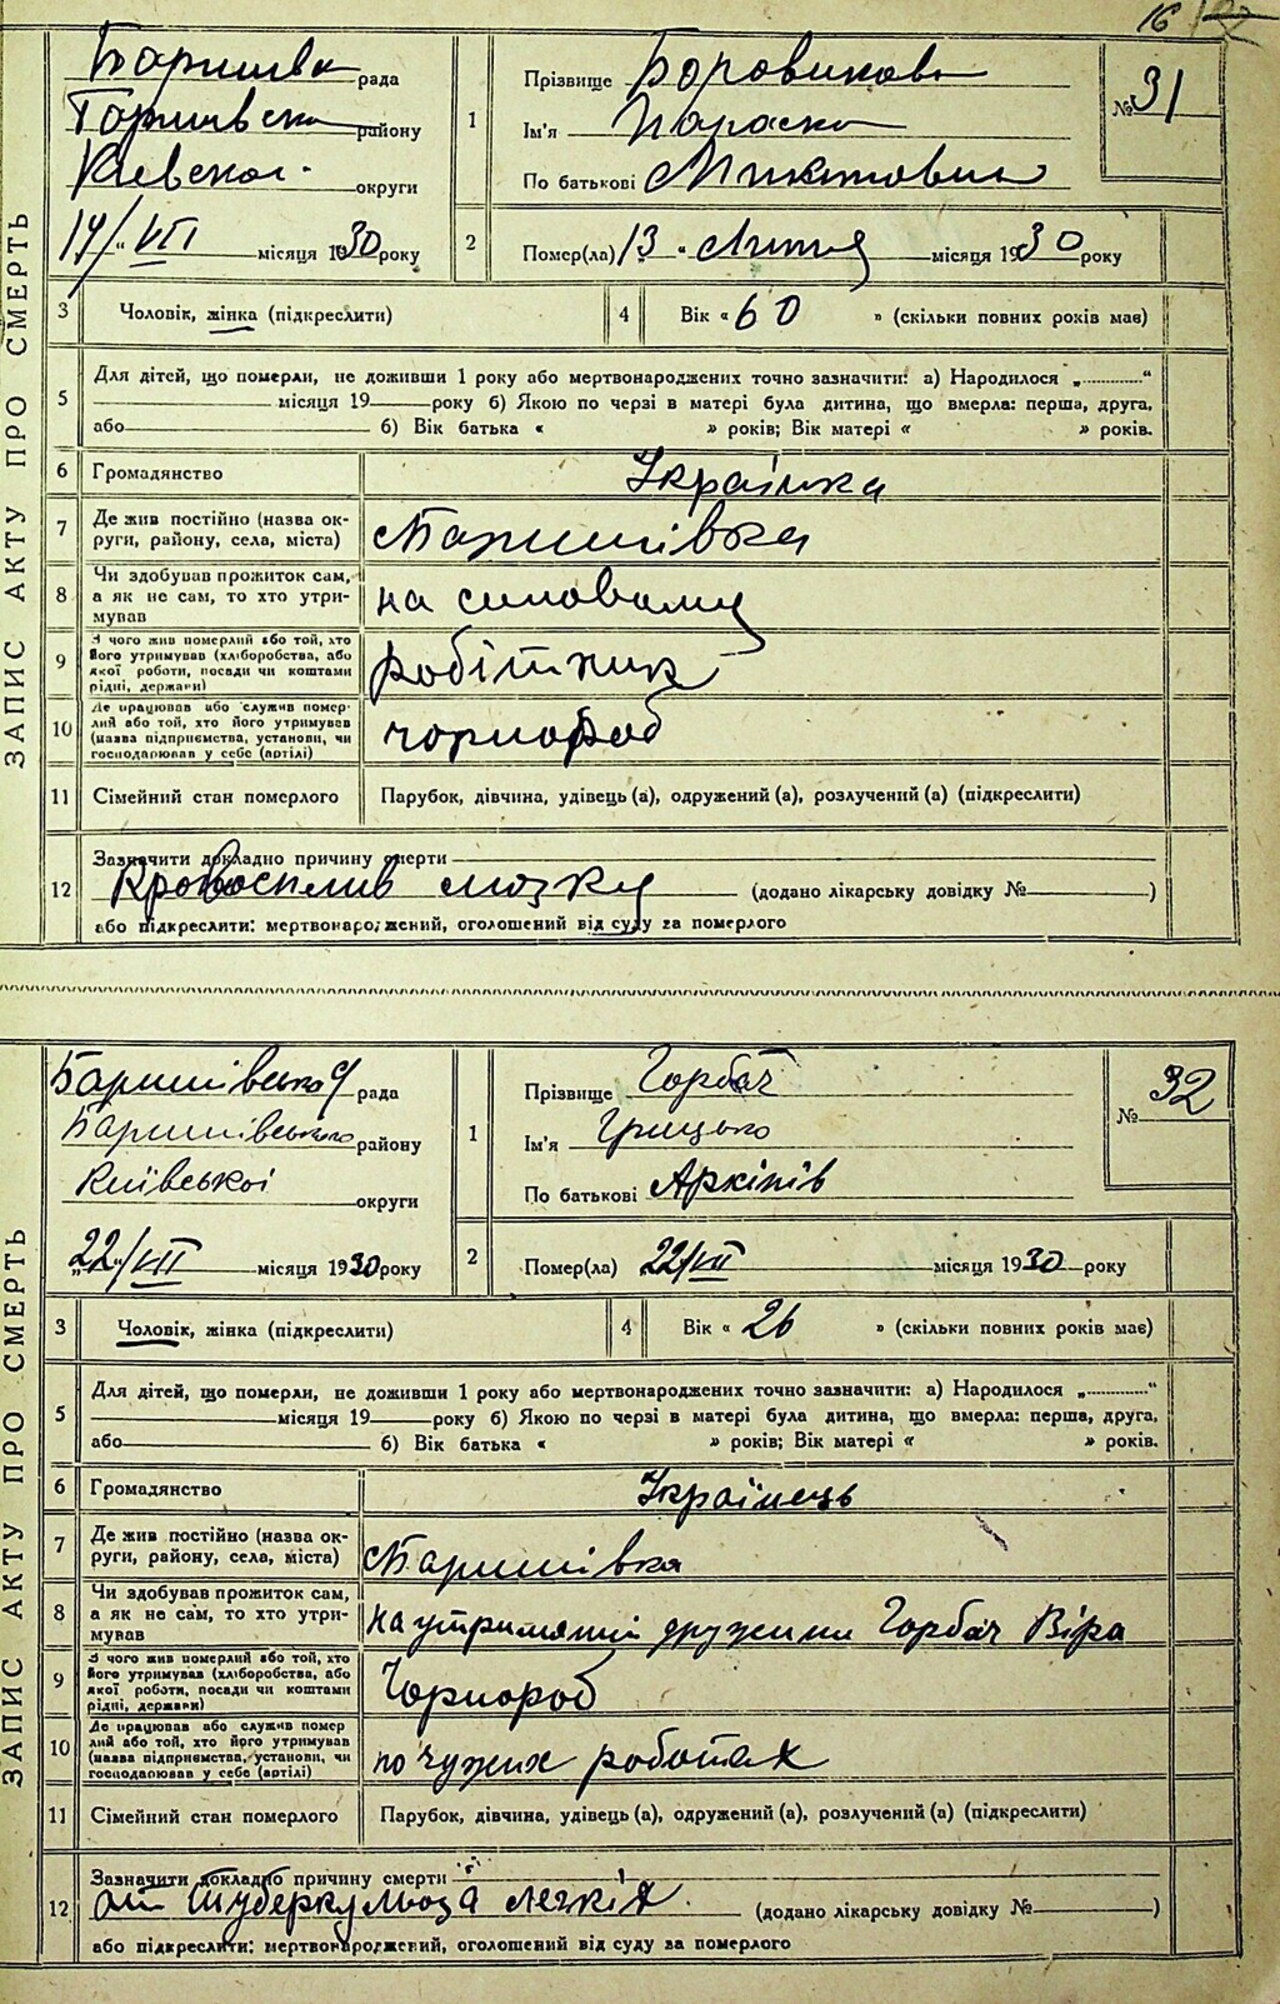 16
ЗАПИС АКТУ ПРО СМЕРТЬ
рада
району
округи
14/VII місяця 1930 року
1
Прізвище Боровикова
Ім'я Параска
По батькові Микитовна
№ 31
2
Помер(ла) 13 " Липня місяця 1930 року
3
Чоловік, жінка (підкреслити)
4
Вік « 60 » (скільки повних років має)
5
Для дітей, що померли, не доживши 1 року або мертвонароджених точно зазначити: а) Народилося „ “
місяця 19 року б) Якою по черзі в матері була дитина, що вмерла: перша, друга,
або б) Вік батька « » років; Вік матері « » років.
6
Громадянство Українка
7
Де жив постійно (назва ок-
руги, району, села, міста) Баришівка
8
Чи здобував прожиток сам,
а як не сам, то хто утри-
мував
на синовому
9
З чого жив померлий або той, хто
його утримував (хліборобства, або
якої роботи, посади чи коштами
рідні, держави)
робітник
10
Де працював або служив помер-
лий або той, хто його утримував
(назва підприємства, установи, чи
господарював у себе (артілі)
чорнороб
11
Сімейний стан померлого Парубок, дівчина, удівець (а), одружений (а), розлучений (а) (підкреслити)
12
Зазначити докладно причину смерти
мозку (додано лікарську довідку № )
або підкреслити: мертвонароджений, оголошений від суду за померлого
ЗАПИС АКТУ ПРО СМЕРТЬ
Баришівської рада
Баришівського району
Київської округи
„22“/VII місяця 1930 року
1
Прізвище Горбач
Ім'я Грицько
По батькові Архипів
№ 32
2
Помер(ла) 22/VII місяця 1930 року
3
Чоловік, жінка (підкреслити)
4
Вік « 26 » (скільки повних років має)
5
Для дітей, що померли, не доживши 1 року або мертвонароджених точно зазначити: а) Народилося „ “
місяця 19 року б) Якою по черзі в матері була дитина, що вмерла: перша, друга,
або б) Вік батька « » років; Вік матері « » років.
6
Громадянство Українець
7
Де жив постійно (назва ок-
руги, району, села, міста) Баришівка
8
Чи здобував прожиток сам,
а як не сам, то хто утри-
мував
на утриманні дружини Горбач Віра
9
З чого жив померлий або той, хто
його утримував (хліборобства, або
якої роботи, посади чи коштами
рідні, держави)
Чорнороб
10
Де працював або служив помер
лий або той, хто його утримував
(назва підприємства, установи, чи
господарював у себе (артілі)
по чужих роботах
11
Сімейний стан померлого Парубок, дівчина, удівець (а), одружений (а), розлучений (а) (підкреслити)
12
Зазначити докладно причину смерти
от туберкульоза легкіх (додано лікарську довідку № )
або підкреслити: мертвонароджений, оголошений від суду за померлого